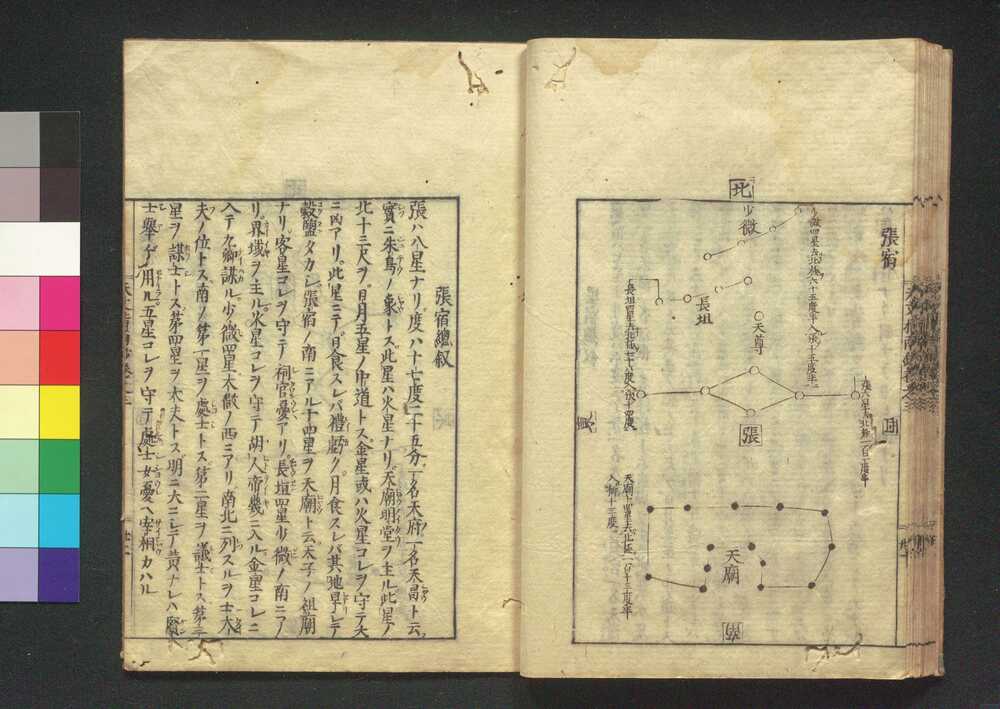 張宿
北
少微
少微四星去北極六十五度半入張十五度半
長垣
長垣四星去北極七十八度入張十四度
天尊
張六星去北極一百二度半
張
天廟
天廟十四星去北極一百十三度半
入張十三度
張宿總叙
張ハ六星ナリ度ハ十七度二十五分一名天府一名天昌ト云
實ニ朱鳥ノ象トス此星ハ火星ナリ天廟明堂ヲ主ル此星ノ
北十三尺ヲ日月五星ノ中道トス金星或ハ火星コレヲ守テ大
ニ凶アリ此星ニテ日食スレバ禮虧ク月食スレバ其地旱シテ
穀鹽タカシ張宿ノ南ニアル十四星ヲ天廟ト云天子ノ祖廟
ナリ客星コレヲ守テ祠官憂アリ長垣四星少微ノ南ニア
リ界域ヲ主ル火星コレヲ守テ胡人帝畿ニ入ル金星コレニ
入テ九卿謀ル少微四星太微ノ西ニアリ南北ニ列スルヲ士大
夫ノ位トス南ノ第一星ヲ處士トス第二星ヲ議士トス第三
星ヲ謀士トス第四星ヲ大夫トス明ニ大ニシテ黄ナレハ賢
士舉ゲ用ル五星コレヲ守テ處士女憂ヘ宰相カハル